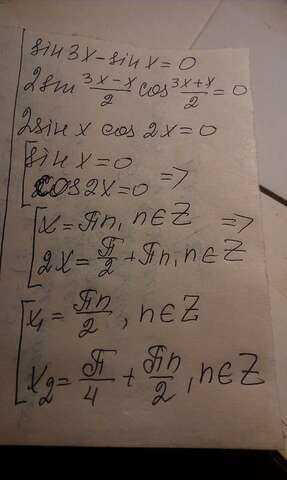 sin3x-sinx=0
2sin (3x-x)/2 cos (3x+x)/2 =0
2sinx cos2x=0
[sinx=0
cos2x=0 =>
[x=πn, n∈Z =>
2x=π/2+πn, n∈Z
[x₁=πn/2, n∈Z
x₂=π/4+πn/2, n∈Z